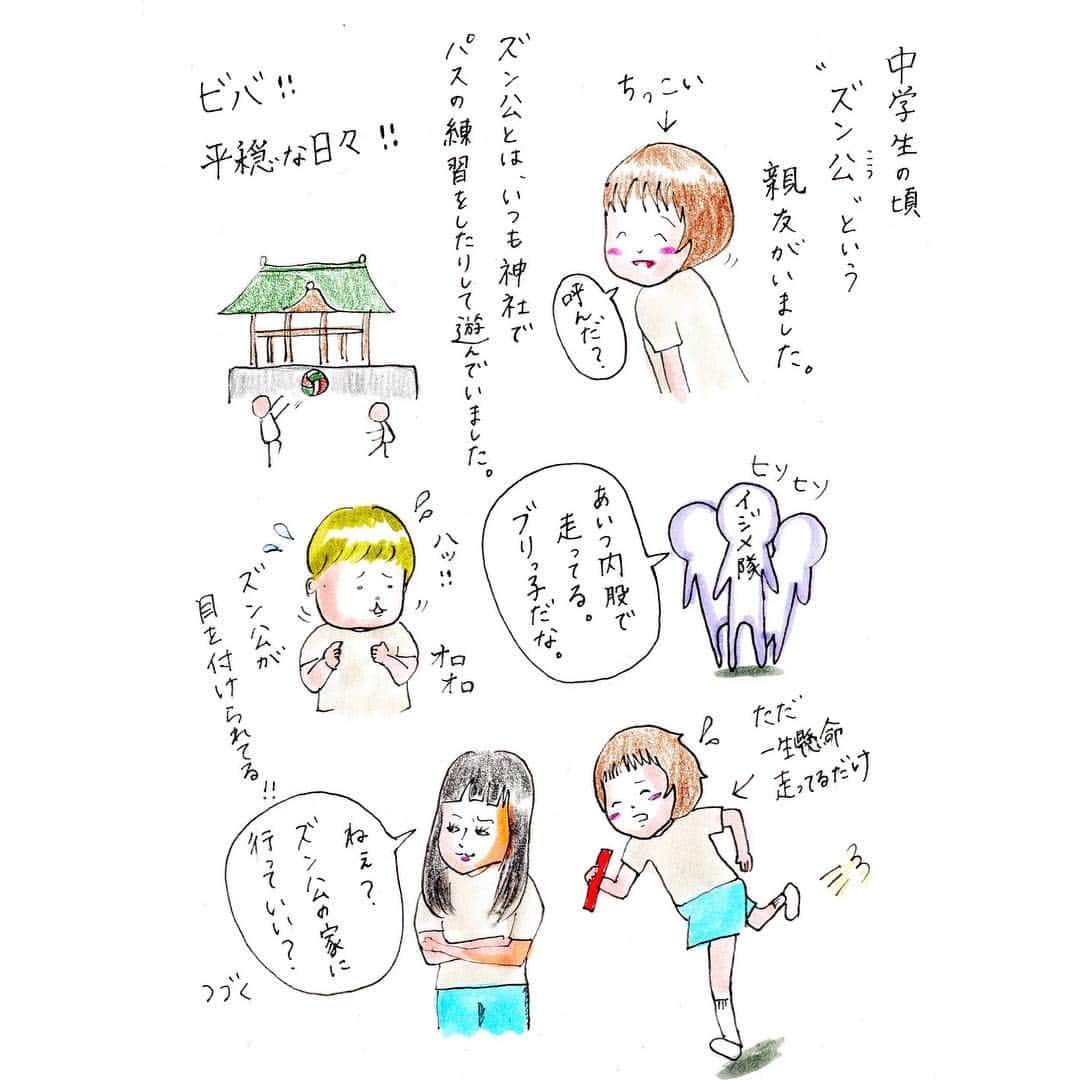 中学生の頃
“ズン公”という
こう
親友がいました。
ちっこい
呼んだ?
ズン公とは、いつも神社で
パスの練習をしたりして遊んでいました。
ビバ!!
平穏な日々!!
ヒソ
ヒソ
イジメ隊
あいつ内股で
走ってる。
ブリっ子だな。
ハッ!!
オロ
オロ
ズン公が
目を付けられてる!!
ただ
一生懸命
走ってるだけ
ねぇ?
ズン公の家に
行っていい?
つづく